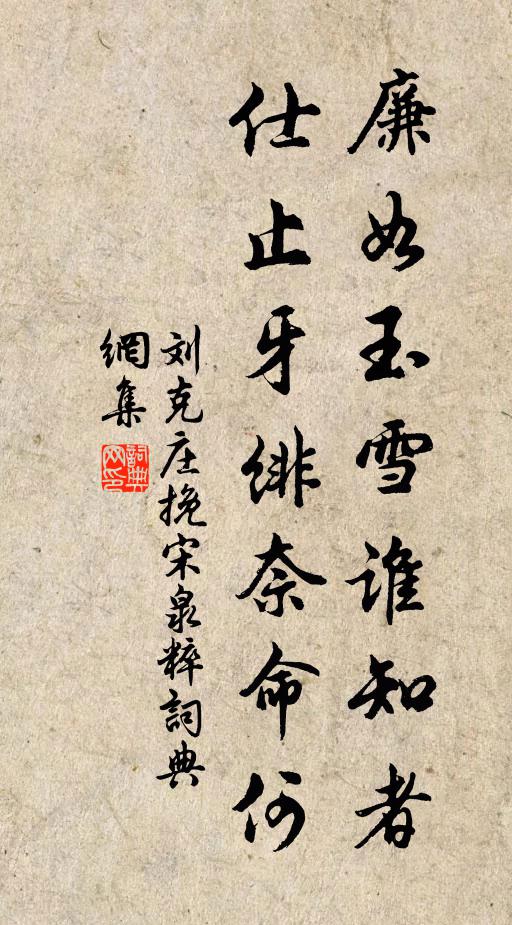 廉如玉雪谁知者
仕止牙绯奈命何
刘克庄挽宋泉粹詞典
網集
詞典網印